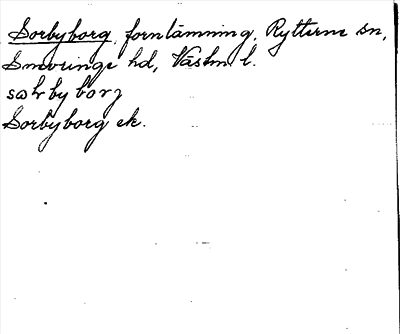 Sorbyborg, fornlämning, Rytterne sn,
Snevringe hd, Västm l.
sωrbyborj
Sorbyborg ek.